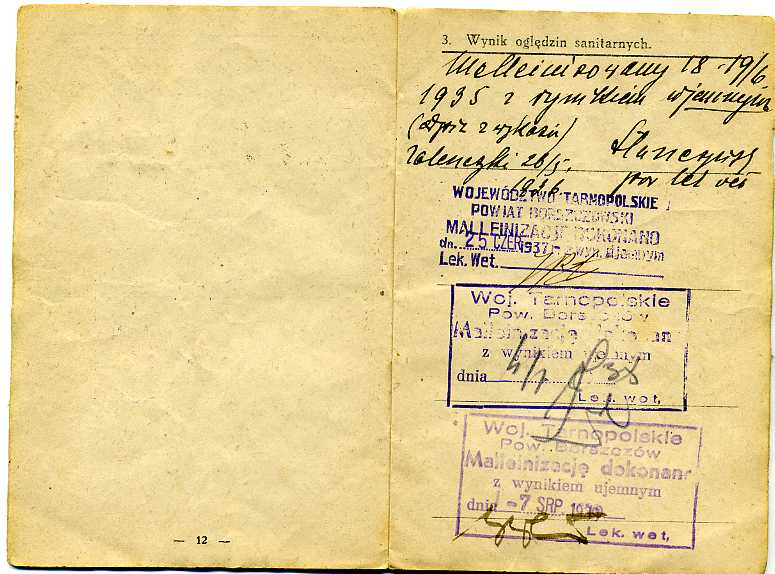 — 12 —
3. Wynik oględzin sanitarnych.
Malleinizowany 18-19/6
1935 z wynikiem ujemnym
(odpis z wykazu)
26/5.
1936
WOJEWÓDZTWO TARNOPOLSKIE
POWIAT BORSZCZOWSKI
MALLEINIZACJĘ DOKONANO
dn. 25 CZER 1937 z wyn. ujemnym
Lek. Wet.
Woj. Tarnopolskie
Pow. Borszczów
Malleinizację dokonan
z wynikiem ujemnym
dnia
Lek. wet,
Woj. Tarnopolskie
Pow. Borszczów
Malleinizację dokonan
z wynikiem ujemnym
dnia -7 SRP.
Lek. wet,